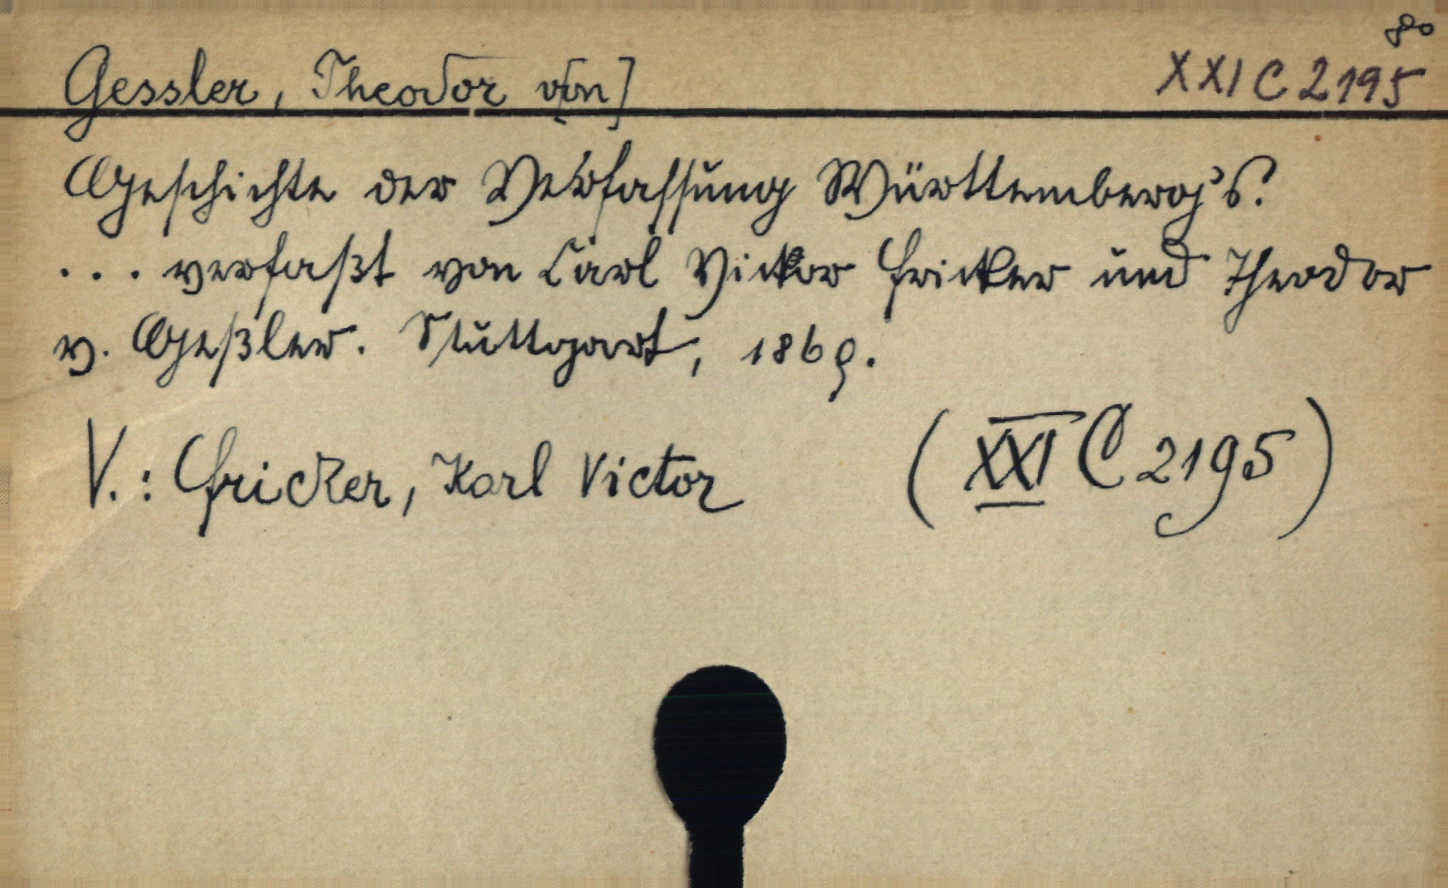 8°
Gessler, Theodor v[on]
XXI C 2195
Geschichte der Verfassung Württemberg's.
... verfaßt von Carl Victor Fricker und Theodor
v. Geßler. Stuttgart, 1869.
V.: Fricker, Karl Victor
(XXI C 2195)